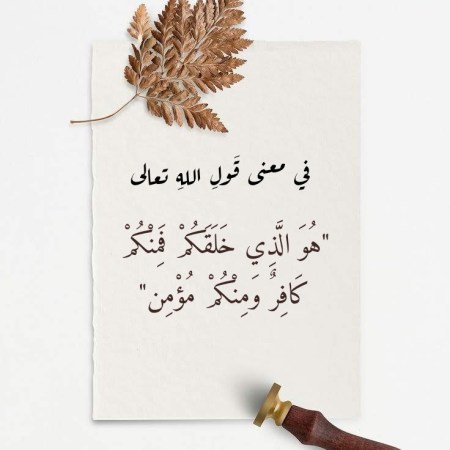 في معنى قَولِ اللهِ تعالى
"هُوَ الَّذِي خَلَقَكُمْ فَمِنْكُمْ
كَافِرٌ وَمِنْكُمْ مُؤْمِن"